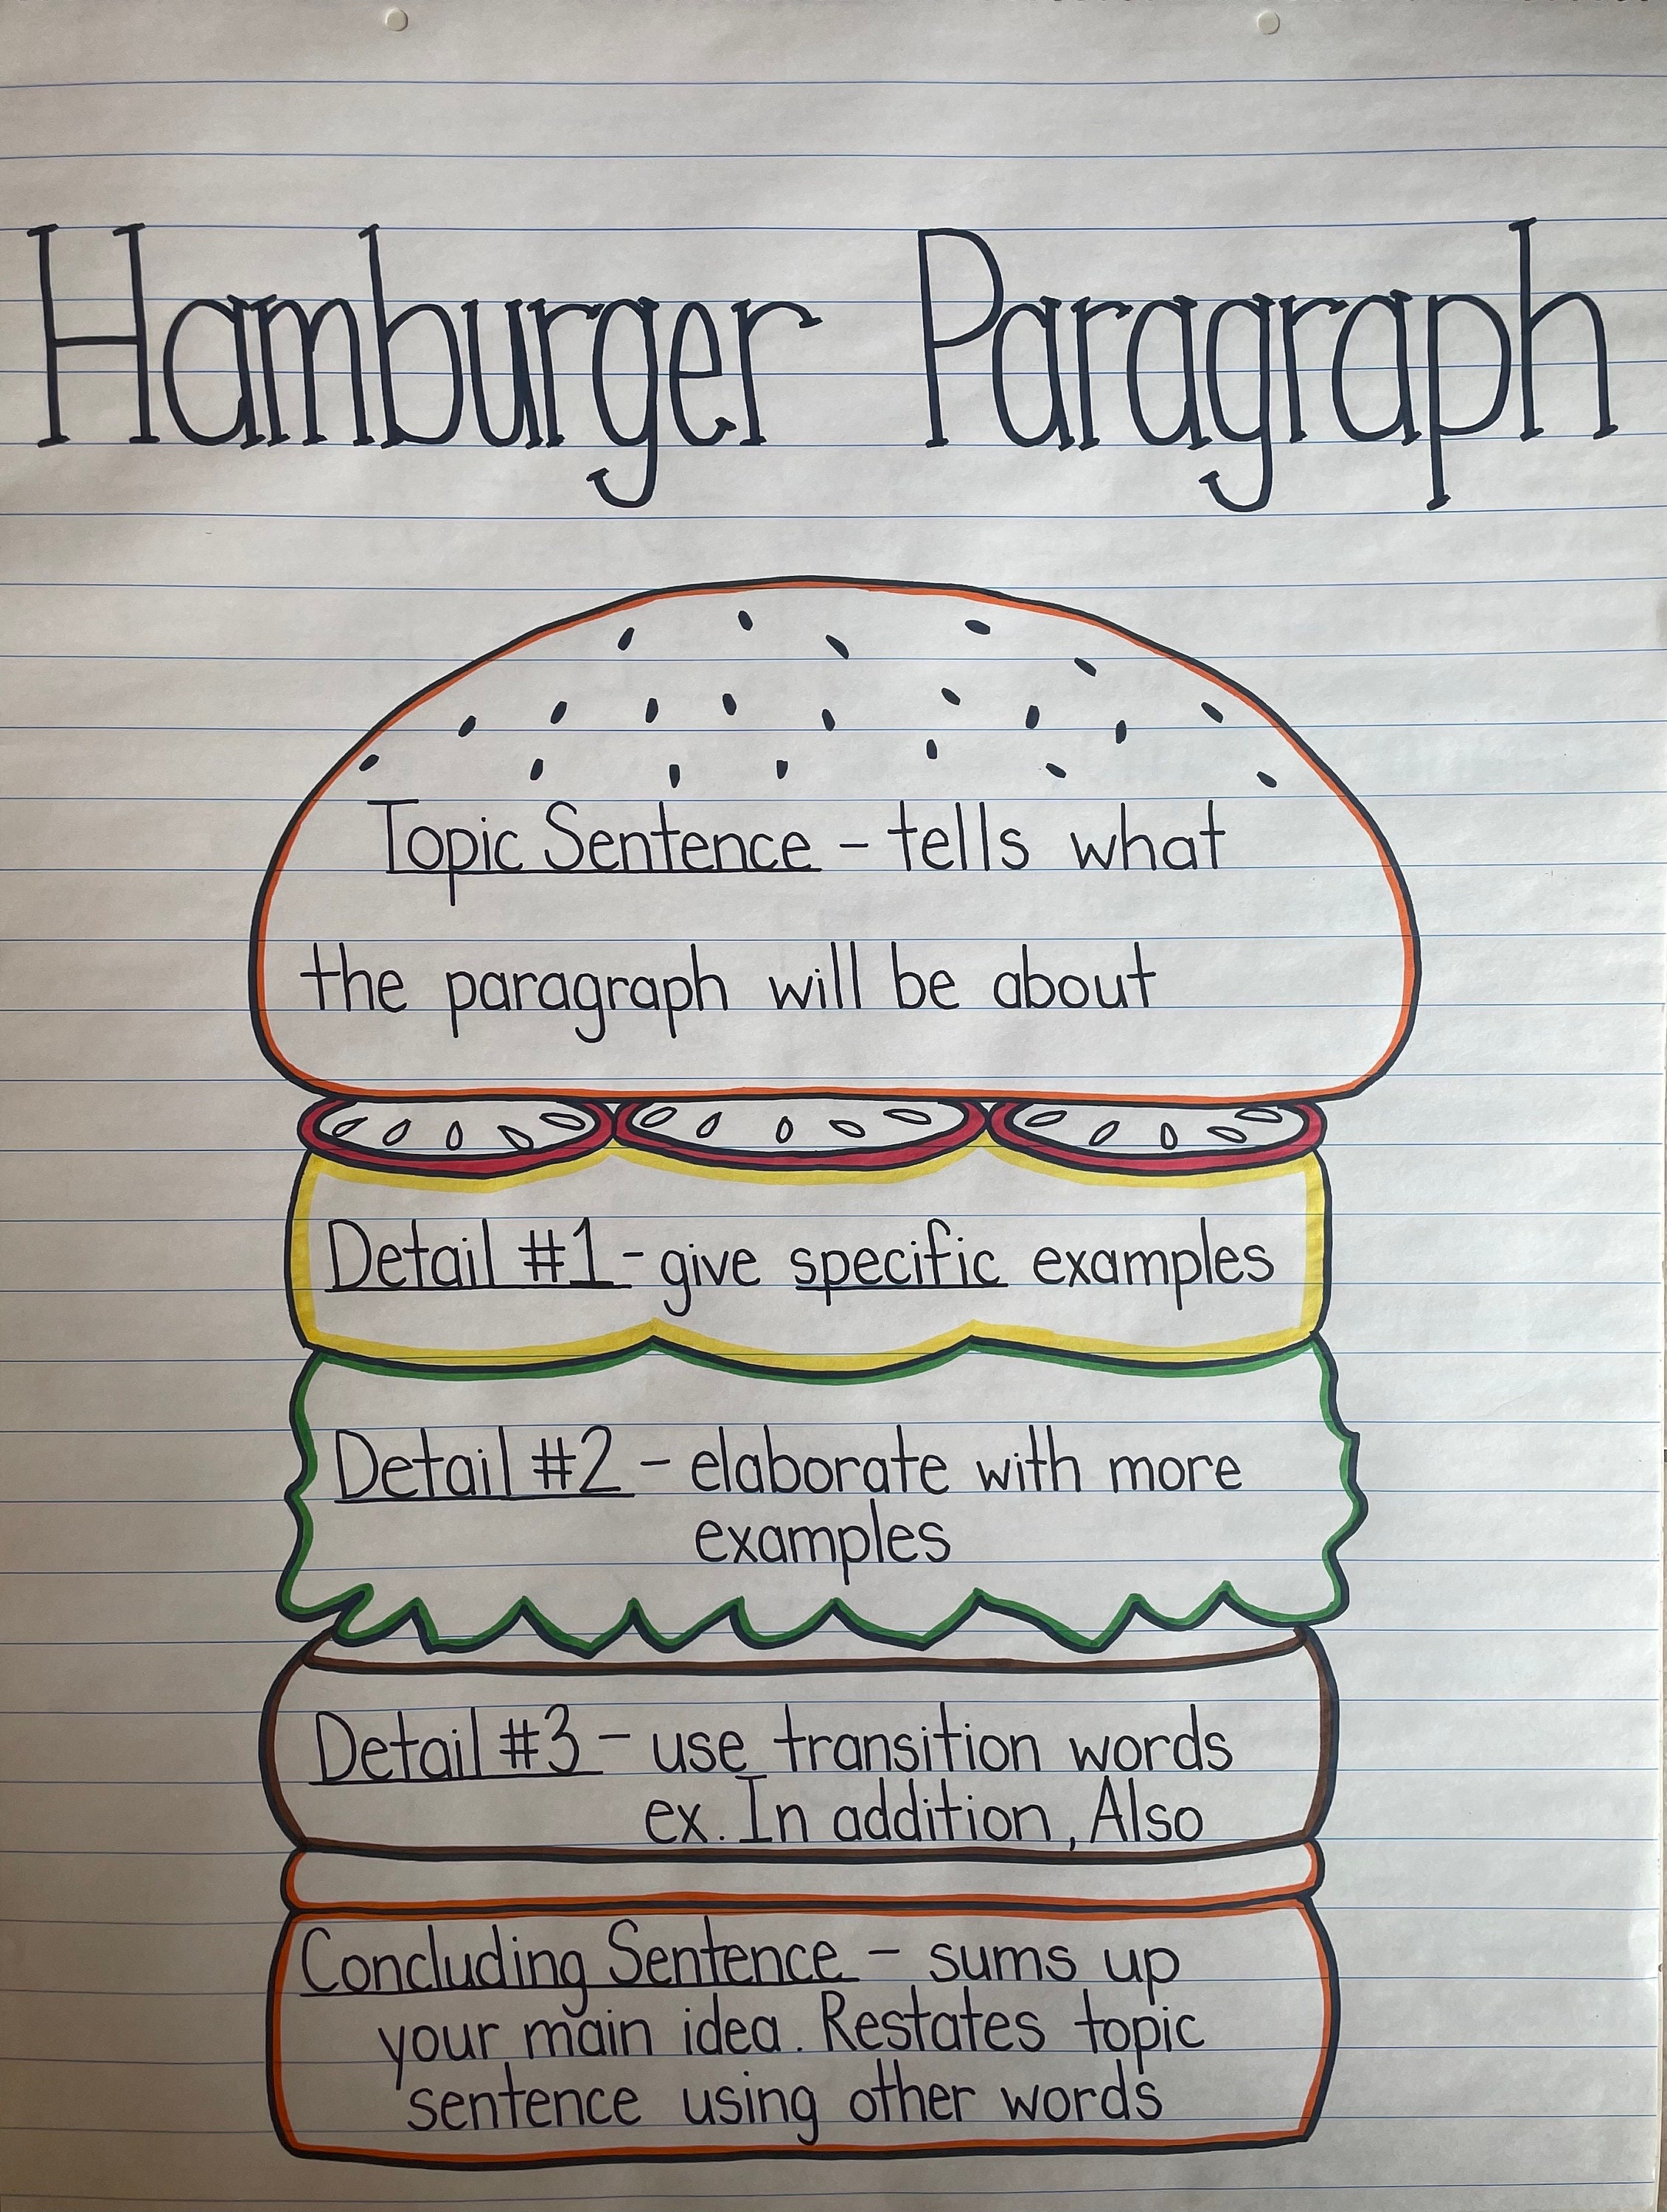 Hamburger Paragraph
Topic Sentence - tells what
the paragraph will be about
Detail #1 - give specific examples
Detail #2 - elaborate with more
examples
Detail #3 - use transition words
ex. In addition, Also
Concluding Sentence - sums up
your main idea. Restates topic
sentence using other words